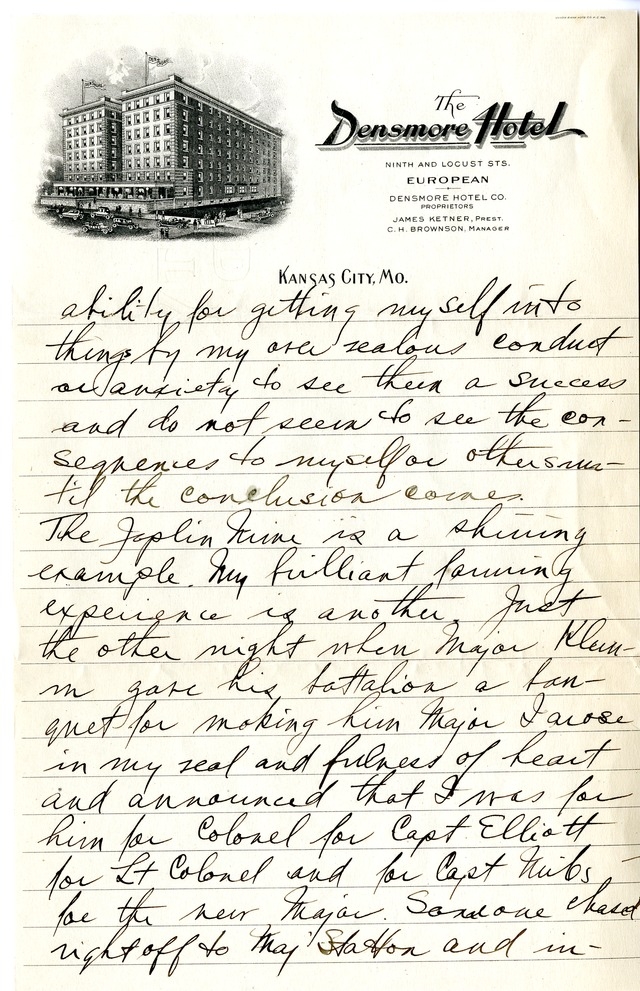 The
Densmore Hotel
NINTH AND LOCUST STS.
EUROPEAN
DENSMORE HOTEL CO.
PROPRIETORS
JAMES KETNER, PREST.
C. H. BROWNSON, MANAGER
KANSAS CITY, MO.
ability for getting myself into
things by my over zealous conduct
or anxiety to see them a success
and do not seem to see the con-
sequences to myself or others un-
til the conclusion comes.
The Joplin Mine is a shining
example. My brilliant farming
experience is another. Just
the other night when Major Klem-
m gave his battalion a ban-
quet for making him Major I arose
in my zeal and fulness of heart
and announced that I was for
him for Colonel for Capt Elliott
for Lt Colonel and for Capt
for the new Major. Someone chased
right off to Maj Statton and in-